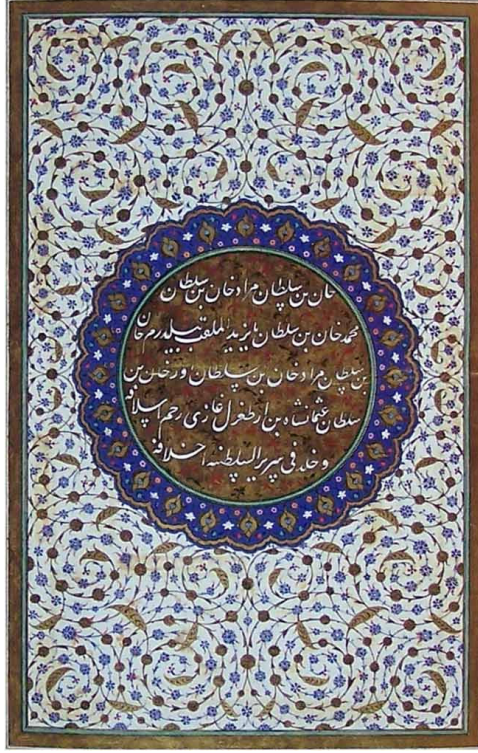 خان بن سلطان مراد خان بن سلطان
محمد خان بن سلطان بايزيد الملقب بيلدرم خان
بن سلطان مراد خان بن سلطان اورخان بن
سلطان عثمانشاه بن ارطغرل غازى رحم اسلافه
و خلد فى سرير السلطنه اخلافه